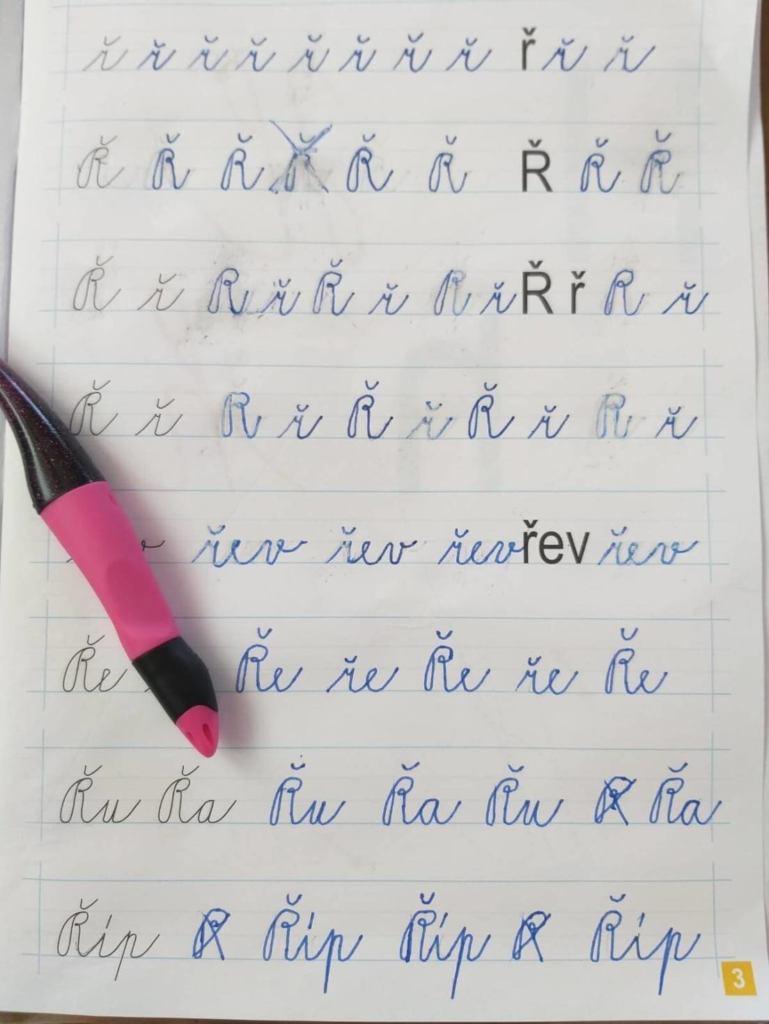 ř ř ř ř ř ř ř ř ř ř ř
Ř Ř Ř Ř Ř Ř Ř Ř Ř
Ř ř R ř Ř ř R ř Ř ř R ř
Ř ř Ř ř Ř ř Ř ř R ř
řev řev řev řev řev
Ře Ře ře Ře ře Ře
Řu Řa Řu Řa Řu R Řa
Říp R Říp Říp R Říp
3